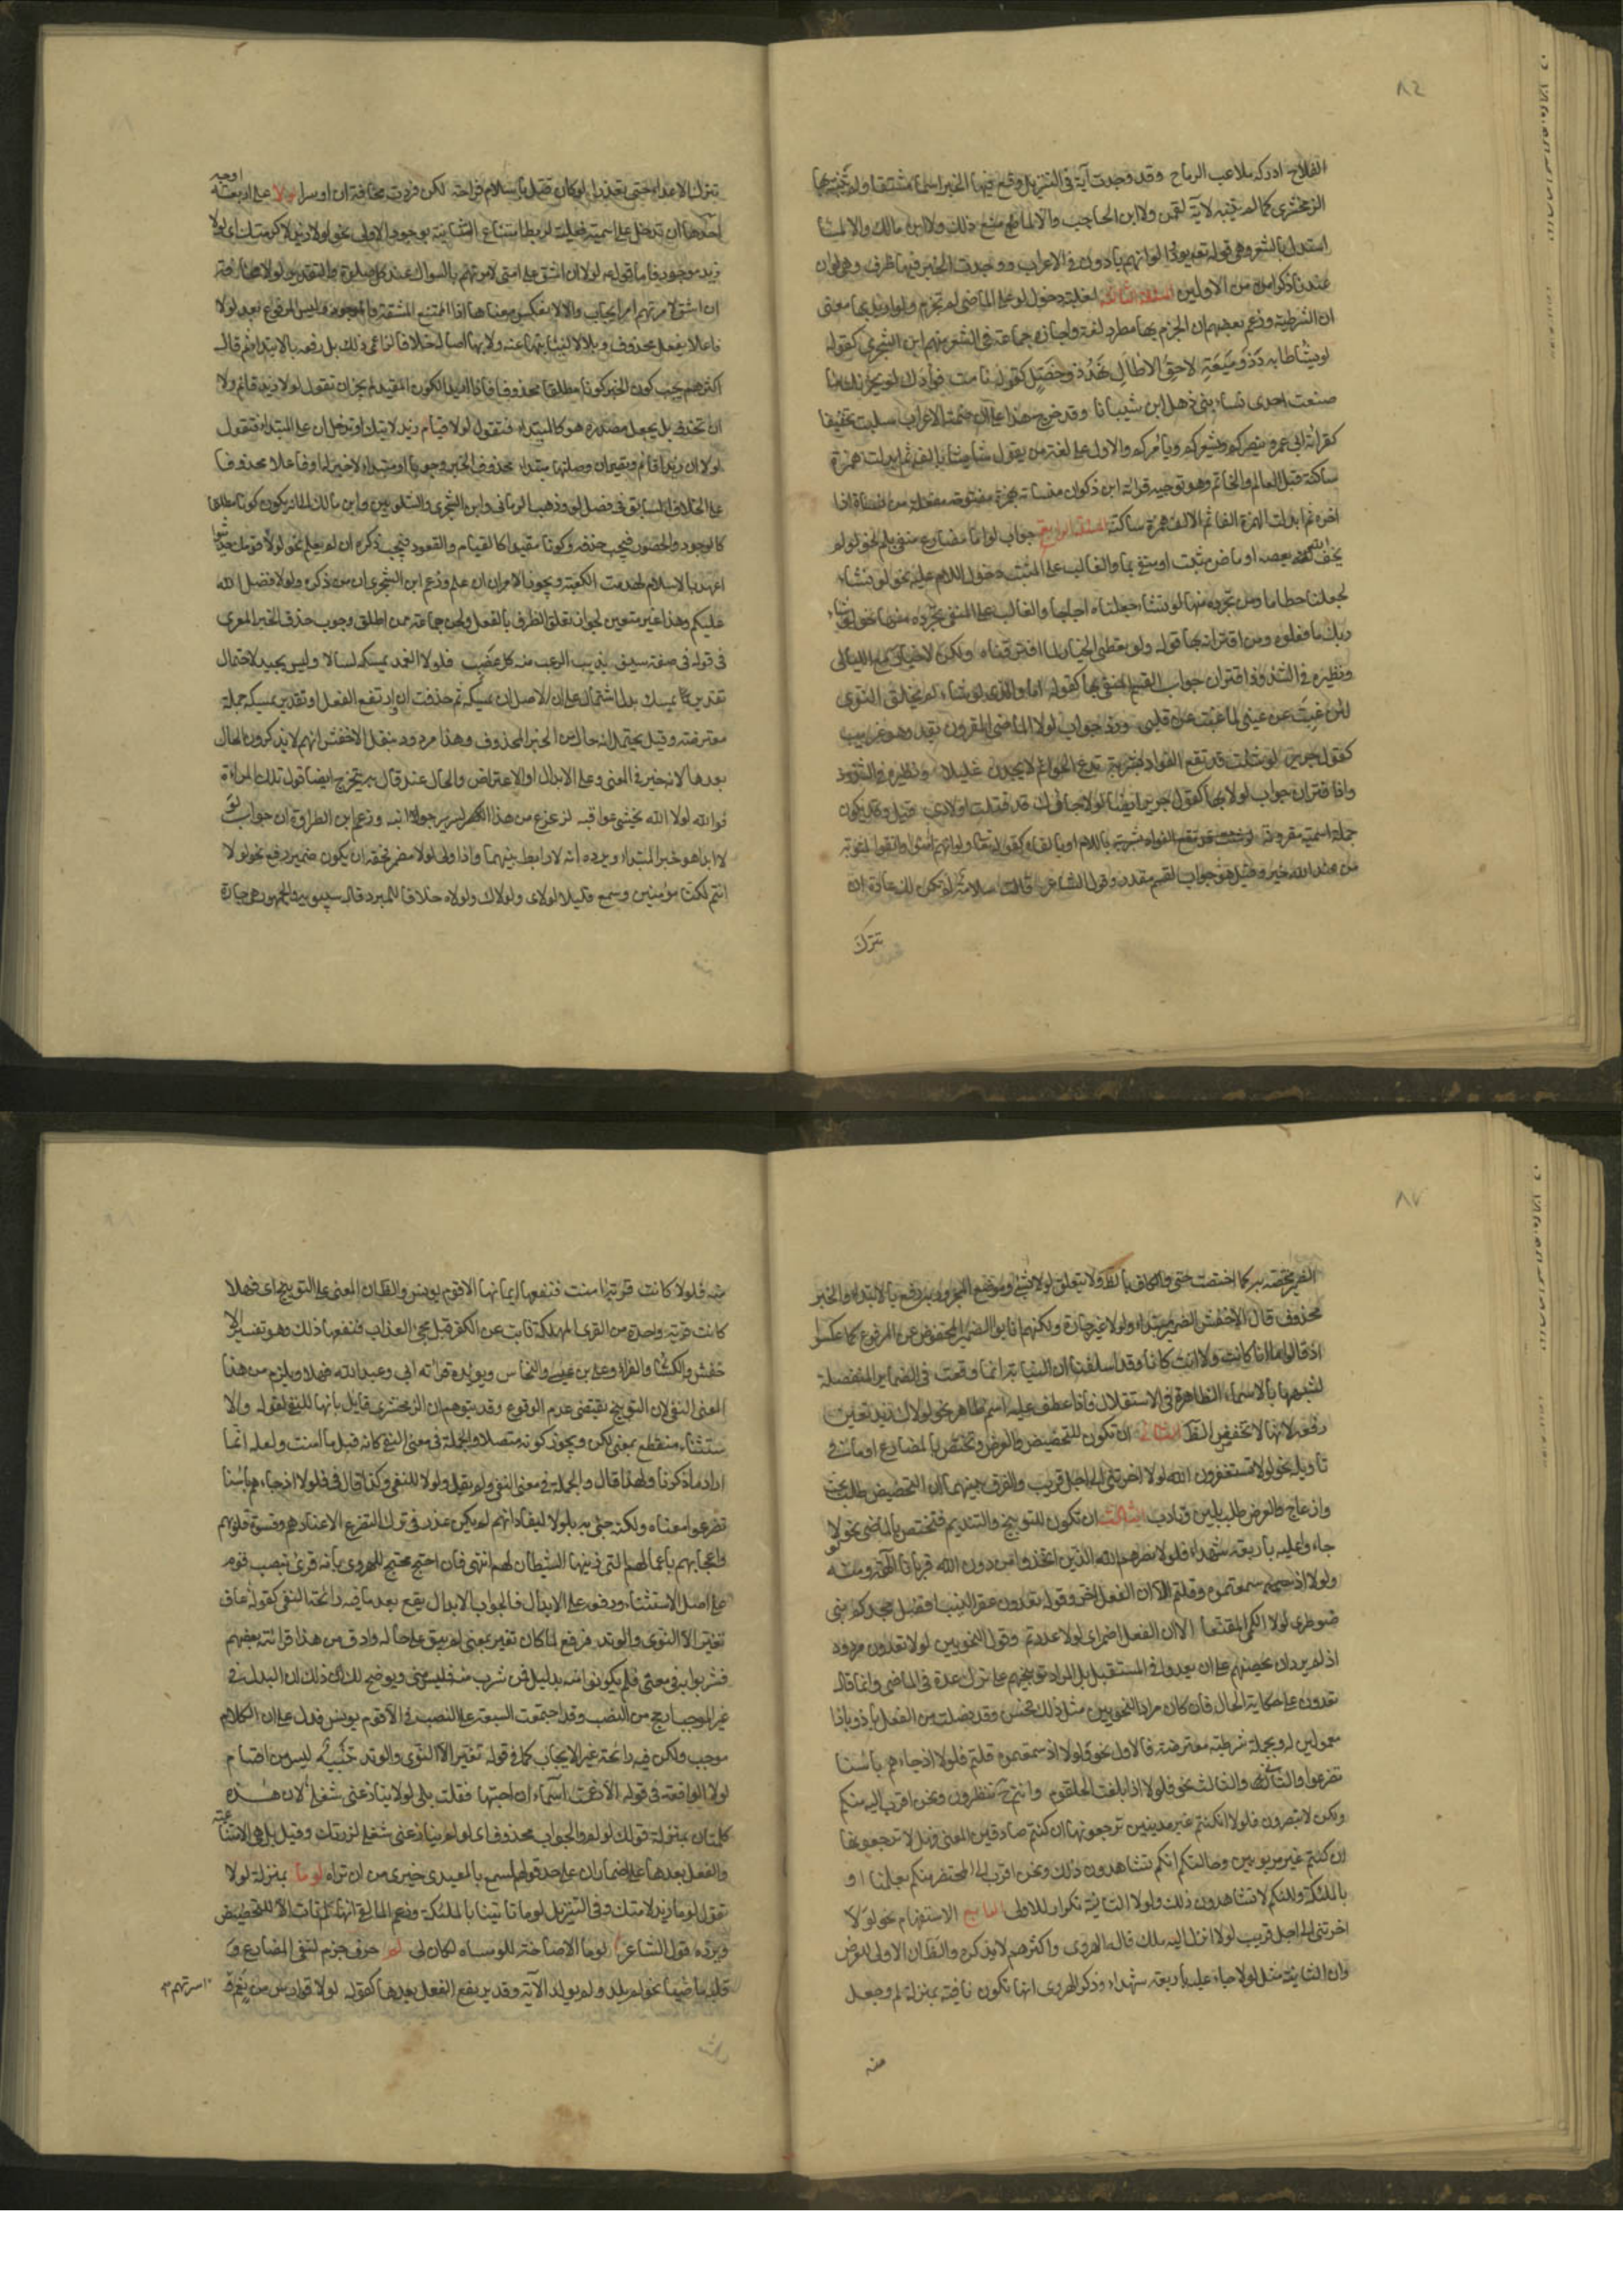 ٨٦
الفلاح ادركه ملاعب الرماح وقد وجدت آية فى التنزيل وقع فيها الخبر اسما مشتقا ولم يتنبه لها
الزمخشرى كما لم يتنبه لاية لقمن ولا ابن الحاجب والا لما منع ذلك ولا ابن مالك والا لما
استدل بالشعر وهى قوله تعه يودوا لوانهم بادون فى الاعراب ووجدت الخبر فيها ظرف وهى لوان
عندنا ذكرا من الاولين المسئلة الثالثة لغلبة دخول لو على الماضى لم تجزم ولو اريد بها معنى
ان الشرطية وزعم بعضهم ان الجزم بها مطرد لغة واجازه جماعة فى الشعر منهم ابن الشجرى كقوله
لو يشا طار به ذو ميعة لاحق الاطال نهد ذو خصل كقوله تامت فؤادك لو يحزنك ما
صنعت احدى نساء بنى ذهل ابن شيبانا وقد خرج هذا على ان ضمة الاعراب سكنت تخفيفا
كقرائة ابى عمرو ينصركم ويشعركم ويأمركم والاول على لغة من يقول شا يشا بالف ثم ابدلت همزة
ساكنة كما قيل العالم والخاتم وهو توجيه قرائة ابن ذكوان منسأته بهمزة
اخره ثم ابدلت الهمزة الفا ثم الالف همزة ساكنة المسئلة الرابعة جواب لو اما مضارع منفى بلم نحو لو لم
يخف الله لم يعصه او ماض مثبت او منفى بما والغالب على المثبت دخول اللام عليه نحو لو نشاء
لجعلناه حطاما ومن تجرده منها لو نشاء جعلناه اجاجا والغالب على المنفى تجرده منها نحو ولو شاء
ربك ما فعلوه ومن اقترانه بها قوله ولو نعطى الخيار لما افترقنا ولكن لا خيار مع الليالى
ونظيره فى الشذوذ اقتران جواب القسم المنفى بها كقوله اما والذى لو شاء لم يخلق النوى
لئن غبت عن عينى لما غبت عن قلبى وورد جواب لو الماضى المقرون بقد وهو غريب
كقول جرير لو شئت قد نقع الفؤاد بشربة تدع الحوائم لا يجدن غليلا ونظيره فى الشذوذ
واذا اقتران جواب لولا بها كقول جرير ايضا لولا رجاؤك قد قتلت اولادى قيل وقد يكون
جملة اسمية مقرونة باللام او بالفاء كقوله تعا ولو انهم امنوا واتقوا لمثوبة
من عند الله خير وقيل هو جواب القسم مقدر وقول الشاعر قالت سلامة لم تكن لك عادة ان
تترك
تترك الاعداء حتى تعذرا لو كان قتل يا سلام فراحة لكن فررت مخافة ان اوسرا لولا على اربعة
اوجه
احدها ان تدخل على اسمية ففعلية لربط امتناع الثانية بوجود الاولى نحو لولا زيد لاكرمتك اى لولا
زيد موجود فاما قوله عم لولا ان اشق على امتى لامرتهم بالسواك عند كل صلوة فالتقدير لولا مخافة
ان اشق لامرتهم امر ايجاب والا لانعكس معناها اذ الممتنع المشقة والموجود وليس المرفوع بعد لولا
فاعلا بفعل محذوف ولا بلولا لنيابتها عنه ولا بها اصالة خلافا لزاعمى ذلك بل رفعه بالابتداء ثم قال
اكثرهم يجب كون الخبر كونا مطلقا محذوفا فاذا اريد الكون المقيد لم يجز ان تقول لولا زيد قائم ولا
ان تحذفه بل يجعل مصدره هو المبتداء فتقول لولا قيام زيد لاتيتك او تدخل ان على المبتداء فتقول
لولا ان زيدا قائم وتقديران وصلتها مبتداء محذوف الخبر وجوبا او مبتداء لا خبر له او فاعلا محذوفا
على الخلاف السابق فى فصل لو وذهب الرمانى وابن الشجرى والشلوبين وابن مالك الى انه يكون كونا مطلقا
كالوجود والحصول فيجب حذفه وكونا مقيدا كالقيام والقعود فيجب ذكره ان لم يعلم نحو لولا قومك حديثوا
عهد بالاسلام لهدمت الكعبة ويجوز الامران ان علم وزعم ابن الشجرى ان من ذكره ولولا فضل الله
عليكم وهذا غير متعين لجواز تعلق الظرف بالفعل ولحن جماعة ممن اطلق وجوب حذف الخبر المعرى
فى قوله فى صفة سيف يذيب الرعب منه كل عضب فلولا الغمد يمسكه لسالا وليس بجيد لاحتمال
تقدير يمسكه بدل اشتمال على ان الاصل ان يمسكه ثم حذفت ان وارتفع الفعل او تقدير يمسكه جملة
معترضة وقيل يحتمل انه حال من الخبر المحذوف وهذا مردود بنقل الاخفش انهم لا يذكرون الحال
بعدها لانه خبر فى المعنى وعلى الابدال او الاعتراض والحال عند من قال به يتخرج ايضا قول تلك المراءة
فوالله لولا الله تخشى عواقبه لزعزع من هذا السرير جوانبه وزعم ابن الطراوة ان جواب لو
لا ابدا هو خبر المبتداء ويرده انه لا رابط بينهما واذا ولى لولا مضمر فحقه ان يكون ضمير رفع نحو لولا
انتم لكنا مؤمنين وسمع قليلا لولاى ولولاك ولولاه خلافا للمبرد قال سيبويه والجمهور هى جارة
٨٧
للضمير مختصة به كما اختصت حتى والكاف بالظه ولا يتعلق لولا بشئ وموضع المجرور بها رفع بالابتداء والخبر
محذوف قال الاخفش الضمير مبتداء ولولا غير جارة ولكنهم انابوا الضمير المخفوض عن المرفوع كما عكسوا
اذ قالوا ما انا كانت ولا انت كانا وقد اسلفنا ان النيابة انما وقعت فى الضماير المنفصلة
لشبهها بالاسماء الظاهرة فى الاستقلال فاذا عطف عليه اسم ظاهر نحو لولاك وزيد تعين
رفعه لانها لا تخفض الظه الثانى ان تكون للتحضيض والعرض وتختص بالمضارع او ما فى
تأويله نحو لولا تستغفرون الله لولا اخرتنى الى اجل قريب والفرق بينهما ان التحضيض طلب بحث
وازعاج والعرض طلب بلين وتادب الثالث ان تكون للتوبيخ والتنديم فتختص بالماضى نحو لولا
جاؤا عليه باربعة شهداء فلولا نصرهم الله الذين اتخذوا من دون الله قربانا آلهة ومنه
ولولا اذ سمعتموه قلتم الا ان الفعل اخر وقوله تعدون عقر النيب افضل مجدكم بنى
ضوطرى لولا الكمى المقنعا الا ان الفعل اضمر اى لولا عددتم وقول النحويين لولا تعدون مردود
اذ لم يرد ان يحضهم على ان يعدوا فى المستقبل بل المراد توبيخهم على ترك عده فى الماضى وانما قال
تعدون على حكاية الحال فان كان مراد النحويين مثل ذلك فحسن وقد فصلت من الفعل باذ وباذا
معمولين له وبجملة شرطية معترضة فالاول نحو ولولا اذ سمعتموه قلتم فلولا اذ جاءهم باسنا
تضرعوا والثانى والثالث نحو فلولا اذا بلغت الحلقوم وانتم ح تنظرون ونحن اقرب اليه منكم
ولكن لا تبصرون فلولا ان كنتم غير مدينين ترجعونها ان كنتم صادقين المعنى فهلا ترجعونها
ان كنتم غير مربوبين وحالتكم انكم تشاهدون ذلك ونحن اقرب الى المحتضر منكم بعلمنا او
بالملئكة ولكنكم لا تشاهدون ذلك ولولا الثانية تكرار للاولى الرابع الاستفهام نحو لولا
اخرتنى الى اجل قريب لولا انزل اليه ملك قاله الهروى واكثرهم لا يذكره والظه ان الاولى للعرض
وان الثانية مثل لولا جاؤا عليه باربعة شهداء وذكر الهروى انها تكون نافية بمنزلة لم وجعل
منه
منه فلولا كانت قرية امنت فنفعها ايمانها الا قوم يونس والظه ان المعنى على التوبيخ اى فهلا
كانت قرية واحدة من القرى المهلكة تابت عن الكفر قبل مجئ العذاب فنفعها ذلك وهو تفسير الا
خفش والكسائى والفراء وعلى بن عيسى والنحاس ويؤيده قرائة ابى وعبد الله فهلا ويلزم من هذا
المعنى النفى لان التوبيخ يقتضى عدم الوقوع وقد يتوهم ان الزمخشرى قايل بانها للنفى لقوله والا
ستثناء منقطع بمعنى لكن ويجوز كونه متصلا والجملة فى معنى النفى كانه قيل ما امنت ولعله انما
اراد ما ذكرنا ولهذا قال والجملة فى معنى النفى ولم يقل ولولا للنفى وكذا قال فى فلولا اذ جاءهم باسنا
تضرعوا معناه ولكنه جئ به بلولا ليفاد انهم لم يكن عذر فى ترك التضرع الا عنادهم وقسوة قلوبهم
واعجابهم باعمالهم التى زينها الشيطان لهم انتهى فان احتج محتج للهروى بانه قرئ بنصب قوم
على اصل الاستثناء ورفعه على الابدال فالجواب ان الابدال يقع بعد ما فيه رائحة النفى كقوله عاف
تغير الا النوى والوتد فرفع لما كان تغير بمعنى لم يبق على حاله وادق من هذا قرائة بعضهم
فشربوا منه فى معنى فلم يكونوا منه بدليل فمن شرب منه فليس منى ويوضح لك ذلك ان البدل فى
غير الموجب ارجح من النصب وقد اجتمعت السبعة على النصب فى الا قوم يونس فدل على ان الكلام
موجب ولكن فيه رائحة غير الايجاب كما فى قوله تغير الا النوى والوتد تنبيه ليس من اقسام
لولا الواقعة فى قوله الا زعمت اسماء ان لا احبها فقلت بلى لولا ينازعنى شغلى لان هذه
كلمتان بمنزلة قولك لو لم والجواب محذوف اى لو لم ينازعنى شغلى لزرتك وقيل بل هى الامتناعية
والفعل بعدها على اضمار ان على حد قولهم تسمع بالمعيدى خير من ان تراه لوما بمنزلة لولا
تقول لوما زيد لاكرمتك وفى التنزيل لوما تأتينا بالملئكة وزعم المالقى انها لم تأت الا للتحضيض
ويرده قول الشاعر لوما الاصاخة للوشاة لكان لى لم حرف جزم لنفى المضارع و
قلبه ماضيا نحو لم يلد ولم يولد الآية وقد يرفع الفعل بعدها كقوله لولا فوارس من نعم
واسرتهم